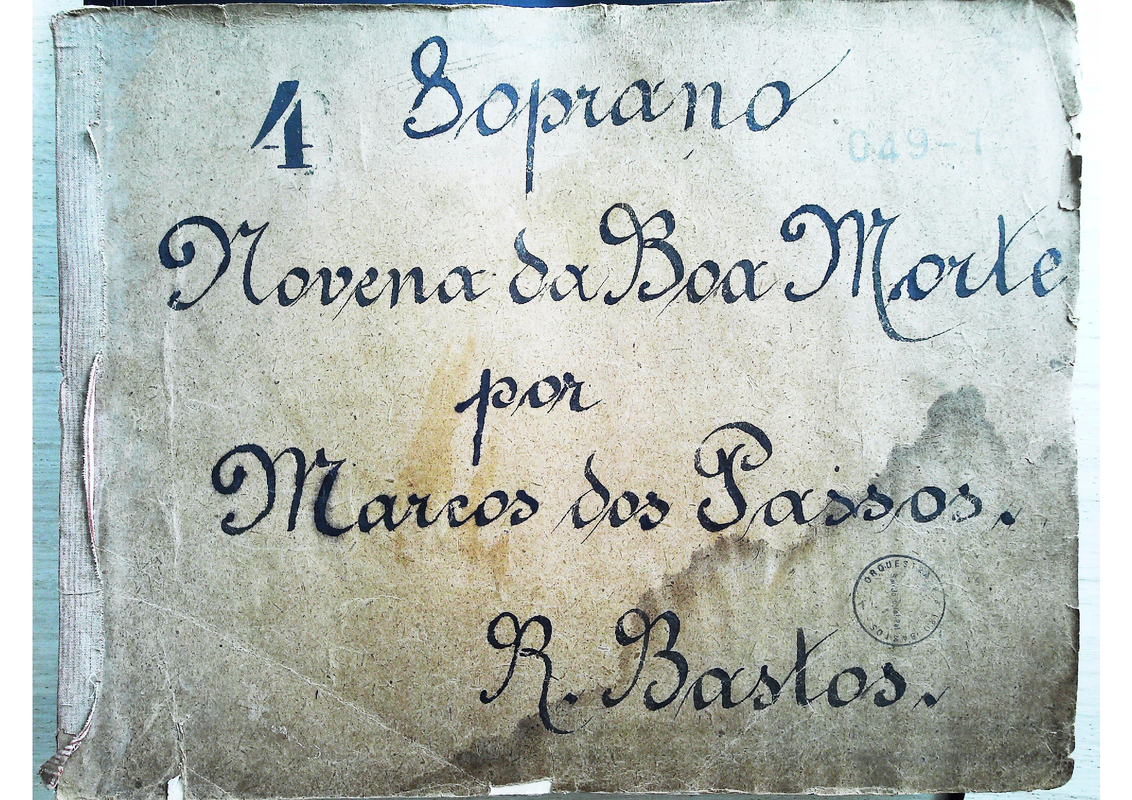 4 Soprano
049-1
Novena da Boa Morte
por
Marcos dos Passos.
ORQUESTRA
BASTOS
R. Bastos.